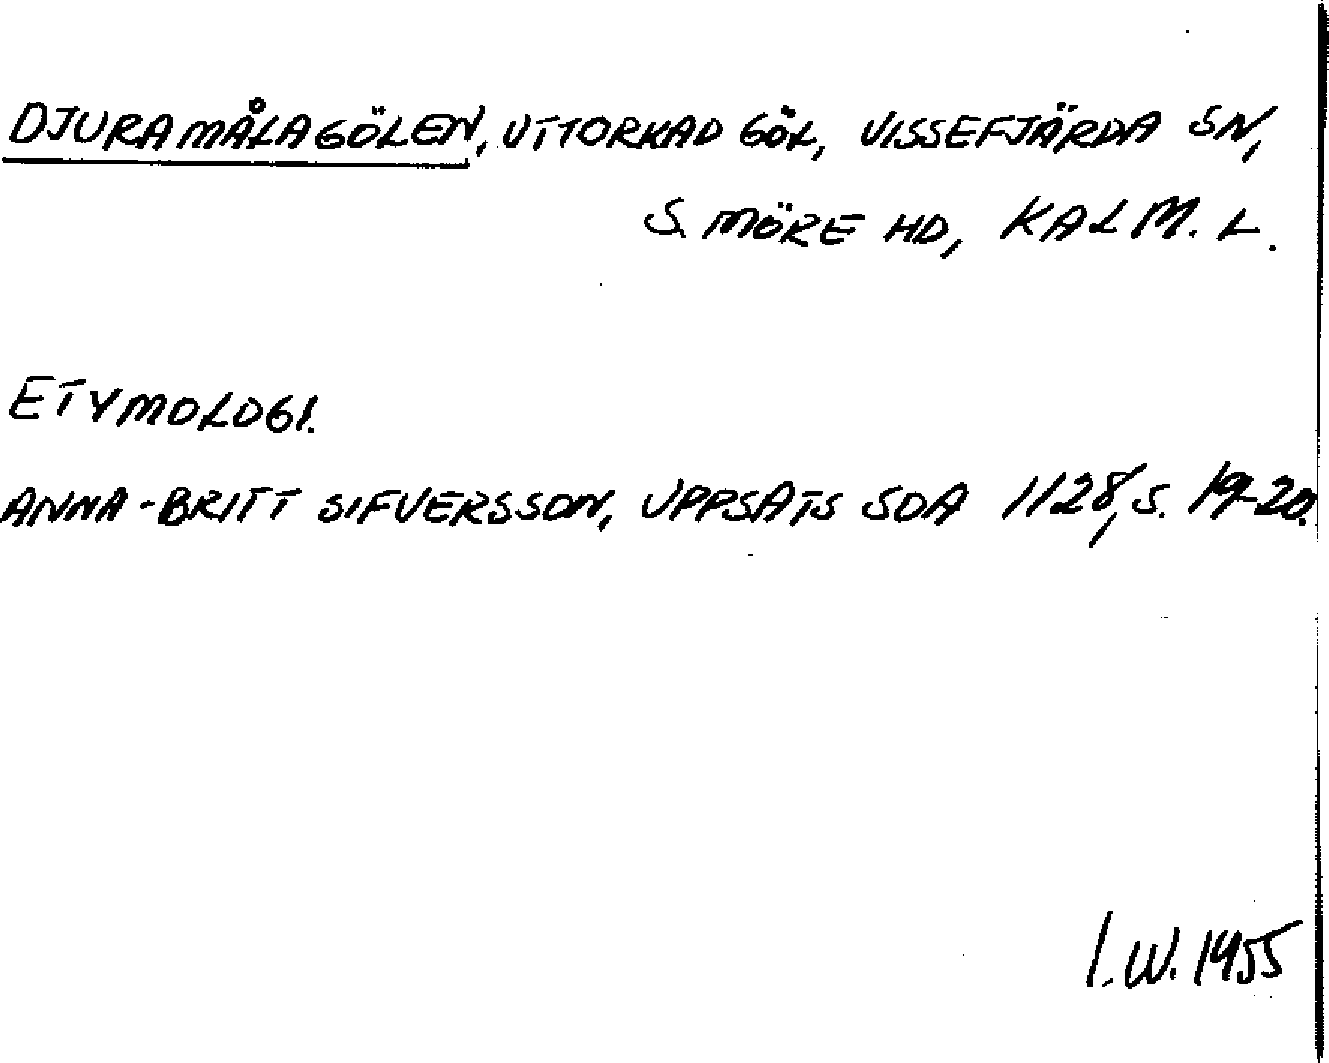 DJURAMÅLAGÖLEN, UTTORKAD GÖL, VISSEFJÄRDA SN,
S. MÖRE HD, KALM. L.
ETYMOLOGI.
ANNA-BRITT SIFVERSSON, UPPSATS SOA 1128, S. 19-20.
I.W. 1955